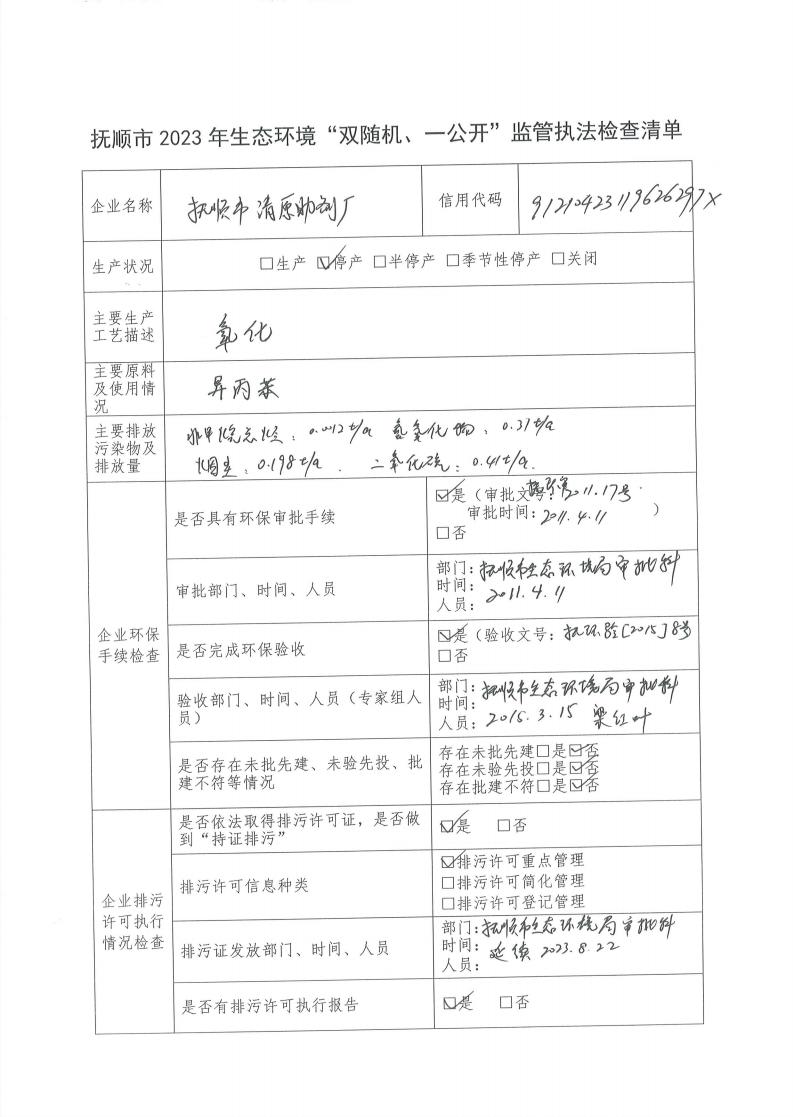 抚顺市 2023 年生态环境“双随机、一公开”监管执法检查清单
企业名称 抚顺市清原助剂厂 信用代码 91210423119626297X
生产状况 □生产 ☑停产 □半停产 □季节性停产 □关闭
主要生产
工艺描述
氧化
主要原料
及使用情
况
异丙苯
主要排放
污染物及
排放量
非甲烷总烃：0.0012t/a 氮氧化物：0.31t/a
烟尘：0.198t/a． 二氧化硫：0.41t/a.
企业环保
手续检查
是否具有环保审批手续
☑是（审批文号：2011.17号
审批时间：2011.4.11 ）
□否
审批部门、时间、人员
部门：抚顺市生态环境局审批科
时间：2011.4.11
人员：
是否完成环保验收
☑是（验收文号：抚环验[2015]8号
□否
验收部门、时间、人员（专家组人
员）
部门：抚顺市生态环境局审批科
时间：
人员：2015.3.15 梁红叶
是否存在未批先建、未验先投、批
建不符等情况
存在未批先建□是☑否
存在未验先投□是☑否
存在批建不符□是☑否
企业排污
许可执行
情况检查
是否依法取得排污许可证，是否做
到“持证排污”
☑是 □否
排污许可信息种类
☑排污许可重点管理
□排污许可简化管理
□排污许可登记管理
排污证发放部门、时间、人员
部门：抚顺市生态环境局审批科
时间：延续 2023.8.22
人员：
是否有排污许可执行报告
☑是 □否